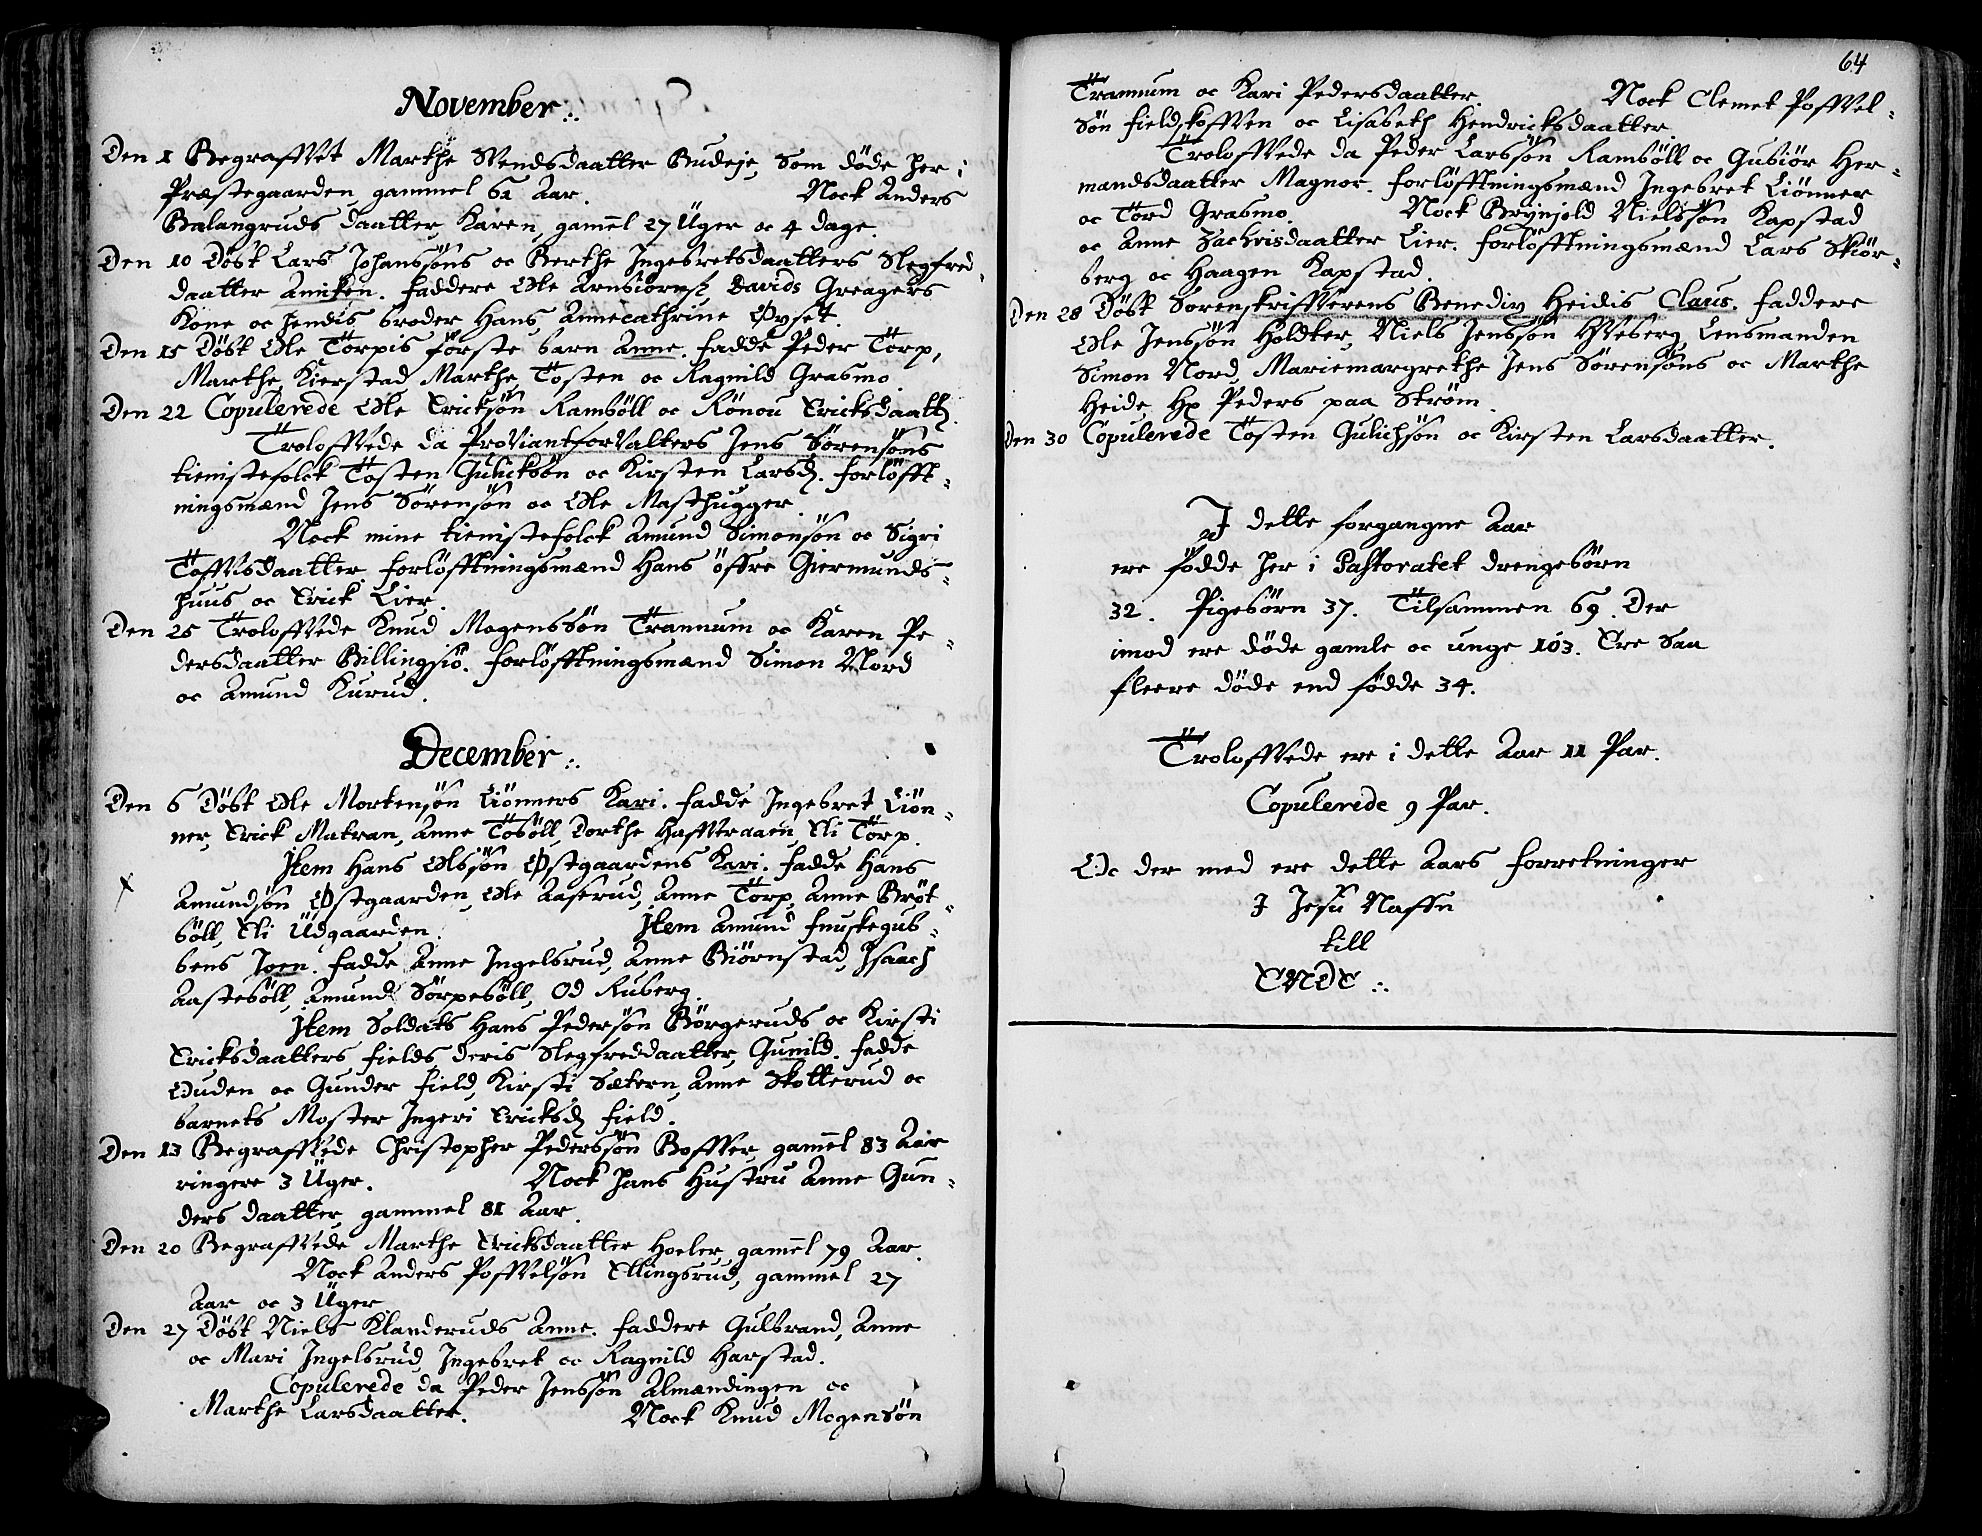 November .:.
Den 1 Begraffvet Marthe Svendsdaatter Budeje, Som døde her i
Præstegaarden, gammel 62 Aar. Nock Anders
Balangruds daatter, Karen, gamel 27 Üger oc 4 dage.
Den 10 Døbt Lars Johanssøns oc Berthe Ingebretsdaatters Slegfred-
daatter Anniken. Faddere Ole Arnbiørns, Davids Greagers
Kone oc hendis broder Hans, Annecathrine Øvset.
Den 15 Døbt Ole Torpis første barn Anne. Fadde Peder Torp,
Marthe Kierstad Marthe Tosten oc Ragnild Grasmo.
Den 22 Copulerede Ole Ericksøn Ramböll oc Rønou Ericksdaatt.
Troloffvede da Proviantforvalters Jens Sørensøns
tienistefolck Tosten Gulicksøn oc Kirsten Larsd. Forløfft-
ningsmænd Jens Sørensøn oc Ole Masthugger.
Nock mine tienistefolck Amund Simonsøn oc Sigri
Toffvsdaatter, Forløfftningsmænd Hans öffre Giermunds-
huus oc Erick Lier.
Den 25 Troloffvede Knud Mogenssøn Trannum oc Karen Pe-
dersdaatter Billingsiø. Forløfftningsmænd Simon Nord
oc Amund Kurud.
December .:.
Den 6 Döbt Ole Mortensøn Liønners Kari. Fadde Ingebret Liøn-
ner, Erick Matran, Anne Tobøll, Dorthe Haffvraaen, Eli Torp.
Item Hans Olssøn Østgaardens Kari. Fadde Hans
Amundsøn Østgaarden, Ole Aaserud, Anne Torp, Anne Brøt-
böll, Eli Üdgaarden. Item Amund Fnuskegub-
bens Joen. Fadde Anne Ingelsrud, Anne Biørnstad, Isaach
Aastebøll, Amund Sörpebøll, Od Ruberg.
Item Soldats Hans Pedersøn Børgeruds oc Kirsti
Ericksdaatters Fields deris Slegfreddaatter, Gunild. Fadde
Ouden oc Gunder Field, Kirsti Sætern, Anne Skotterud oc
barnets Moster Ingeri Ericksd Field.
Den 13 Begraffvede Christopher Pederssøn Boffver, gamel 83 Aar
ringere 3 Üger. Nock hans Hustru Anne Gun-
ders daatter, gammel 81 Aar.
Den 20 Begraffvede Marthe Ericksdaatter Hoeler, gamel 79 Aar.
Nock Anders Poffvelsøn Ellingsrud, gammel 27
Aar oc 3 Üger
Den 27 Døbt Niels Klanderuds Anne. Faddere Gulbrand, Anne
oc Mari Ingelsrud, Ingebret oc Ragnild Harstad.
Copulerede da Peder Jenssøn Almendingen oc
Marthe Larsdaatter. Nock Knud Mogensøn
64
Trannum oc Kari Pedersdaatter. Nock Clemet Poffvel-
søn Fieldskoffven oc Lisabeth Hendricksdaatter.
Troloffvede da Peder Larssøn Ramböll oc Gubiør Her-
mandsdaatter Magnor. Forløfftningsmænd Ingebret Liønner
oc Tord Grasmo. Nock Brynjold Nielssøn Kapstad
oc Anne Zachrisdaatter Lier. Forløfftningsmænd Lars Skiør-
berg oc Haagen Kapstad.
Den 28 Døbt Sorenskriffverens Benedix Heidis Claus. Faddere
Ole Jenssøn Holdter, Niels Jenssøn Hveberg, Lensmanden
Simon Nord, Mariemargrethe Jens Sørensøns oc Marthe
Heide Hr Peders paa Strøm.
Den 30 Copulerede Tosten Gulichsøn oc Kirsten Larsdaatter.
I dette forgangne Aar
ere födde her i Pastoratet drengebørn
32. Pigebørn 37. Tilsammen 69. Der
imod ere døde gamle oc unge 103. Ere Saa
fleere döde end födde 34.
Troloffvede ere i dette Aar 11 Par.
Copulerede 9 Par.
Oc der med ere dette Aars forretninger
I Jesu Naffn
till
ENDE .:.